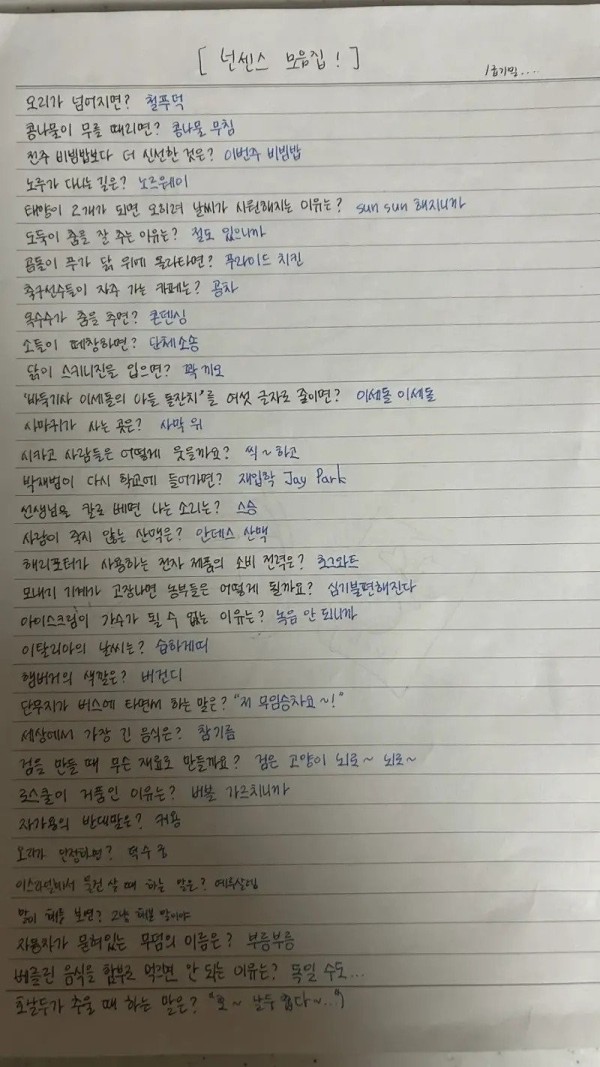 [ 넌센스 모음집! ]
오리가 넘어지면? 철푸덕
콩나물이 무를 때리면? 콩나물 무침
전주 비빔밥보다 더 신선한 것은? 이번주 비빔밥
노루가 다니는 길은? 노르웨이
태양이 2개가 되면 오히려 날씨가 시원해지는 이유는? sun sun 해지니까
도둑이 춤을 잘 추는 이유는? 절도 있으니까
곰돌이 푸가 닭 위에 올라타면? 푸라이드 치킨
축구선수들이 자주 가는 카페는? 공차
옥수수가 춤을 추면? 콘덴싱
소들이 떼창하면? 단체소송
닭이 스키니진을 입으면? 꽉끼오
'바둑기사 이세돌의 아들 돌잔치'를 여섯 글자로 줄이면? 이세돌 이세돌
사마귀가 사는 곳은? 사막 위
시카고 사람들은 어떻게 웃을까요? 씩~하고
박재범이 다시 학교에 들어가면? 재입학 Jay Park
선생님을 칼로 베면 나는 소리는? 스승
사람이 죽지 않는 산맥은? 안데스 산맥
해리포터가 사용하는 전자 제품의 소비 전력은? 호그와트
모내기 기계가 고장나면 농부들은 어떻게 될까요? 심기불편해진다
아이스크림이 가수가 될 수 없는 이유는? 녹음 안 되니까
이탈리아의 날씨는? 습하게띠
햄버거의 색깔은? 버건디
단무지가 버스에 타면서 하는 말은? "저 무임승차요~!"
세상에서 가장 긴 음식은? 참기름
검을 만들 때 무슨 재료로 만들까요? 검은 고양이 뇌로~ 뇌로~
로스쿨이 거품인 이유는? 버블 가르치니까
자가용의 반대말은? 커용
오리가 안정되면? 덕수궁
이스라엘에서 물건 살 때 하는 말은? 예루살렘
말이 해줌 보면? 그냥 해본 말이야
사용자가 묻혀있는 무덤의 이름은? 부릉부릉
베를린 음식을 함부로 먹으면 안 되는 이유는? 독일 수도...
호날두가 추울 때 하는 말은? "호~ 날두 춥다~..."